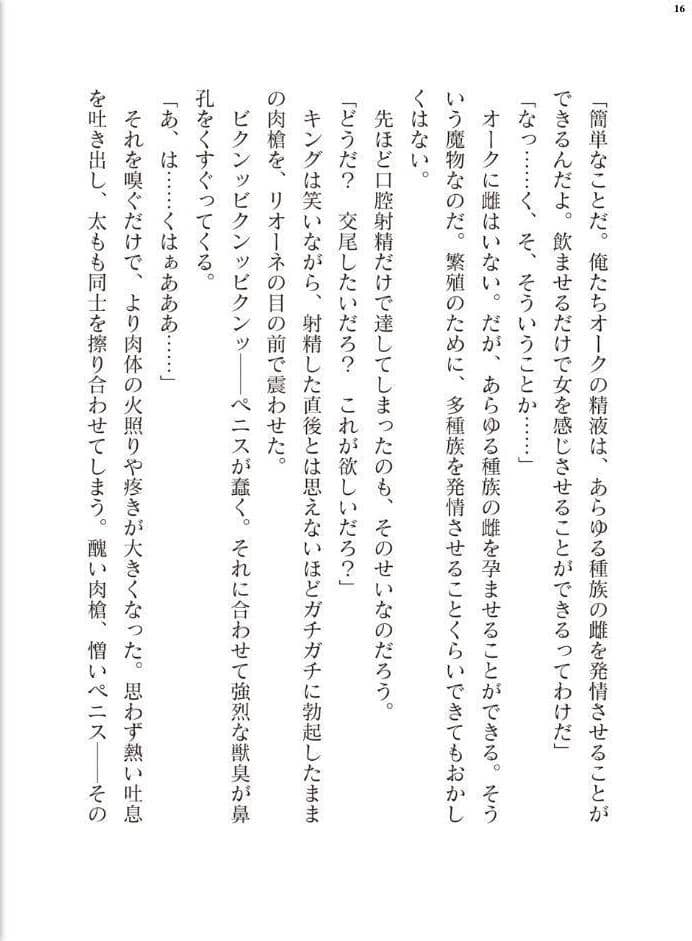 16
「簡単なことだ。俺たちオークの精液は、あらゆる種族の雌を発情させることが
できるんだよ。飲ませるだけで女を感じさせることができるってわけだ」
「なっ……く、そ、そういうことか……」
オークに雌はいない。だが、あらゆる種族の雌を孕ませることができる。そう
いう魔物なのだ。繁殖のために、多種族を発情させることくらいできてもおかし
くはない。
先ほど口腔射精だけで達してしまったのも、そのせいなのだろう。
「どうだ？　交尾したいだろ？　これが欲しいだろ？」
キングは笑いながら、射精した直後とは思えないほどガチガチに勃起したまま
の肉槍を、リオーネの目の前で震わせた。
ビクンッビクンッビクンッ――ペニスが蠢く。それに合わせて強烈な獣臭が鼻
孔をくすぐってくる。
「あ、は……くはぁあああ……」
それを嗅ぐだけで、より肉体の火照りや疼きが大きくなった。思わず熱い吐息
を吐き出し、太もも同士を擦り合わせてしまう。醜い肉槍、憎いペニス――その